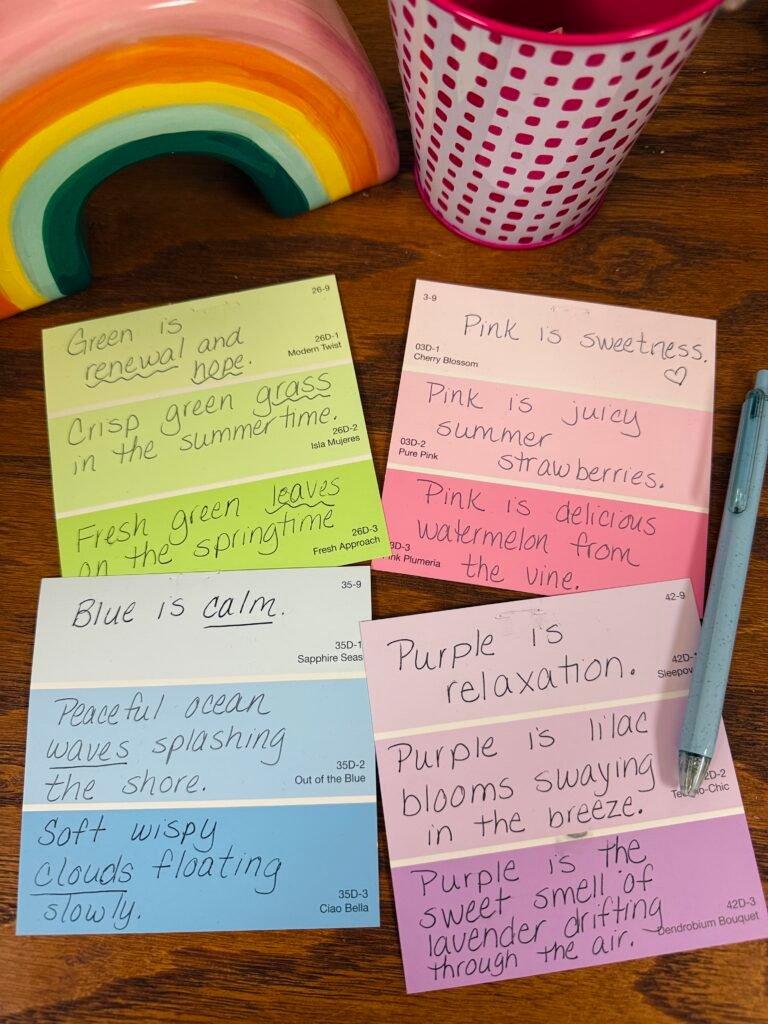 26-9
Green is
renewal and
hope.
26D-1
Modern Twist
Crisp green grass
in the summertime.
26D-2
Isla Mujeres
Fresh green leaves
on the springtime
26D-3
Fresh Approach
3-9
Pink is sweetness.
03D-1
Cherry Blossom
Pink is juicy
summer
strawberries.
03D-2
Pure Pink
Pink is delicious
watermelon from
the vine.
3D-3
Plumeria
35-9
Blue is calm.
35D-1
Sapphire Seas
Peaceful ocean
waves splashing
the shore.
35D-2
Out of the Blue
Soft wispy
clouds floating
slowly.
35D-3
Ciao Bella
42-9
Purple is
relaxation.
42D-1
Purple is lilac
blooms swaying
in the breeze.
2D-2
Purple is the
sweet smell of
lavender drifting
through the air.
42D-3
Dendrobium Bouquet